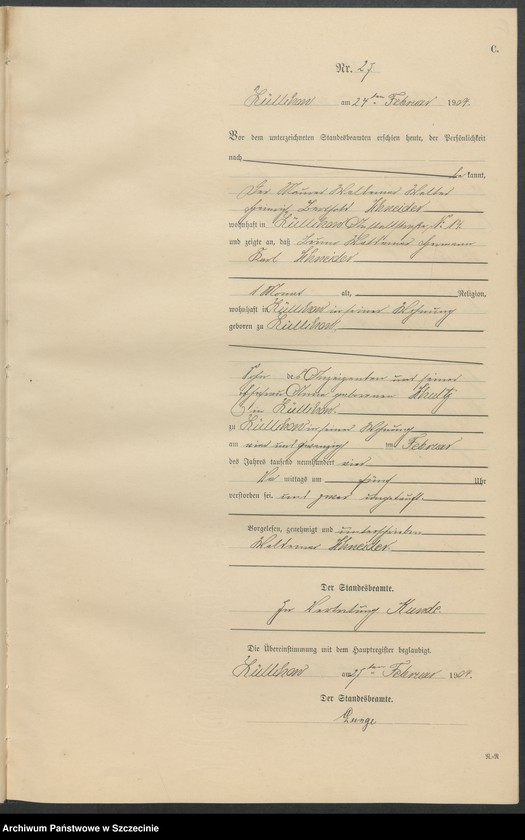 C.
Nr. 27
Züllchow am 24ten Februar 1904.
Vor dem unterzeichneten Standesbeamten erschien heute, der Persönlichkeit
nach
be kannt,
Der Maurer Waldemar Walter
Heinrich Berthold Schneider
wohnhaft in Züllchow, Anstaltstraße No 14.
und zeigte an, daß Bruno Waldemar Hermann
Karl Schneider
1 Monat alt, Religion,
wohnhaft in Züllchow in seiner Wohnung
geboren zu Züllchow,
Sohn des Anzeigenden und seiner
Ehefrau geborenen
in Züllchow
zu Züllchow in seiner Wohnung
am vier und zwanzigsten Februar
des Jahres tausend neunhundert vier
Vor mittags um fünf Uhr
verstorben sei, und zwar ungetauft.
Vorgelesen, genehmigt und unterschrieben
Waldemar Schneider.
Der Standesbeamte.
In Vertretung Kunde.
Die Übereinstimmung mit dem Hauptregister beglaubigt.
Züllchow am Februar 1904.
Der Standesbeamte.
R.-R
Archiwum Państwowe w Szczecinie